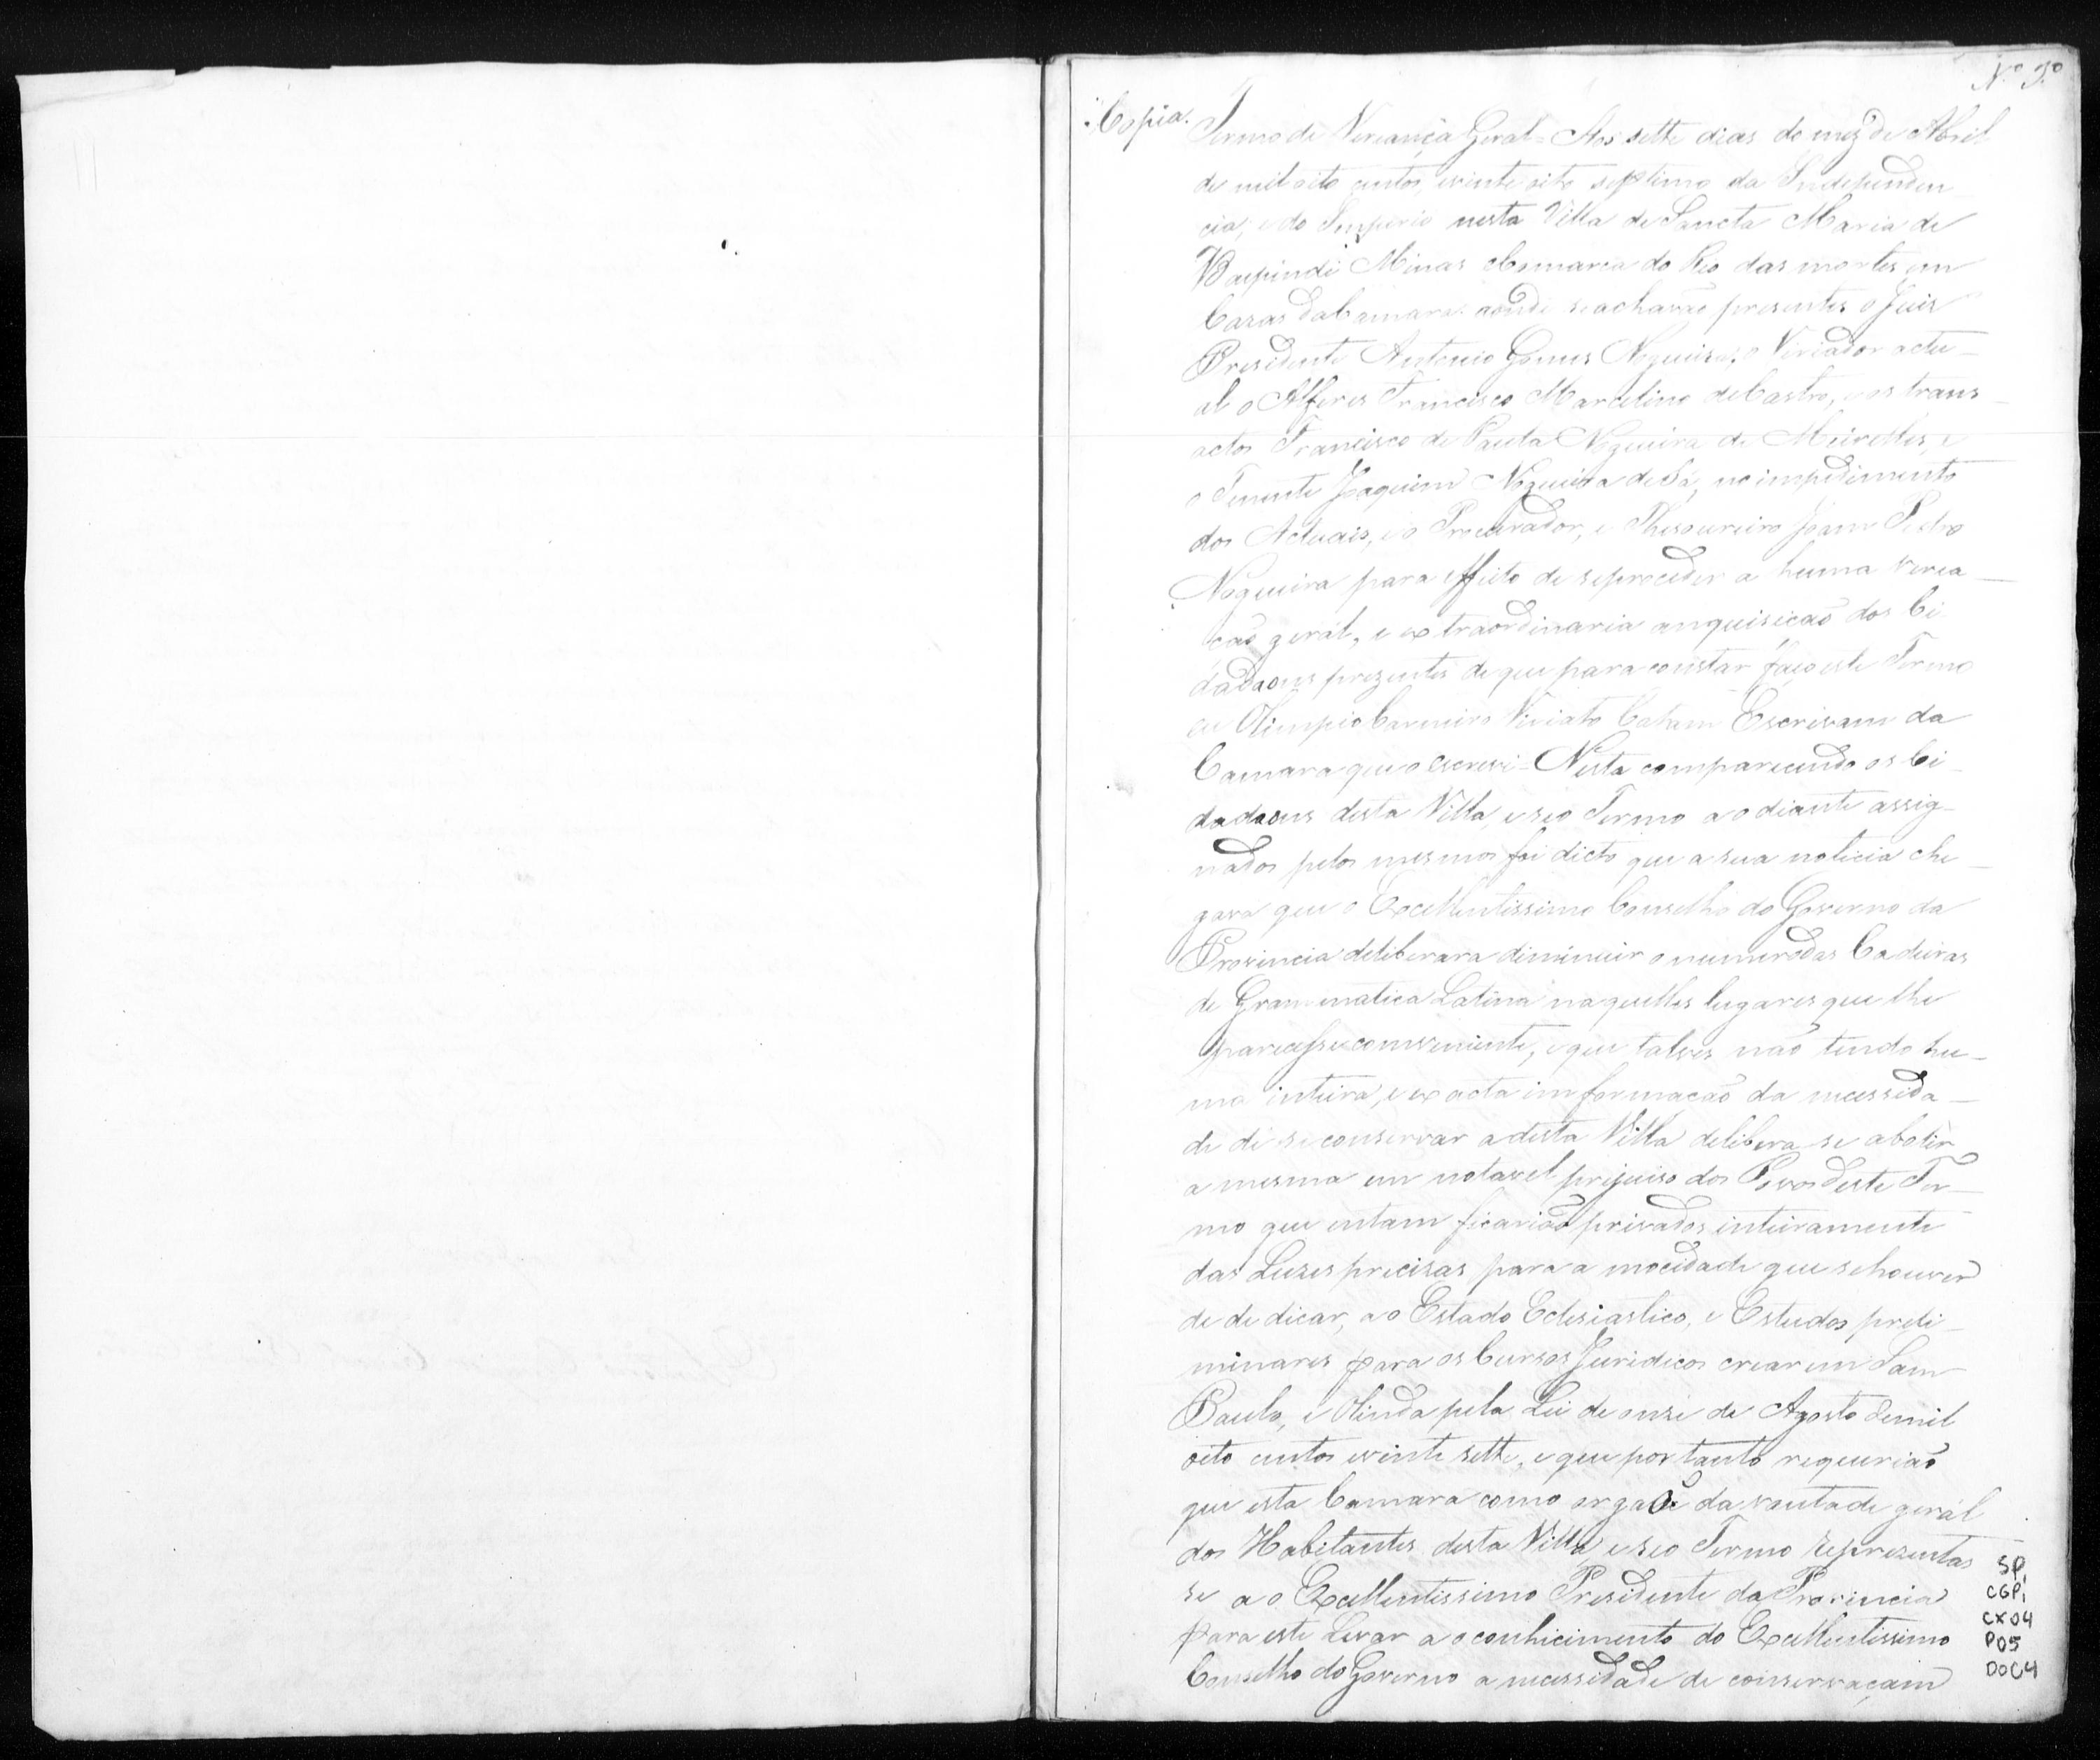 Nº 9º
Copia. Termo de Vereança Geral = Aos sette dias do mez de Abril
de mil oito centos, e vinte oito septimo da Independen
cia, e do Imperio nesta Villa de Sancta Maria de
Baepindi Minas e Comarca do Rio das mortes em
Cazas da Camara aonde se acharão presentes o Juis
Presidente Antonio Gomes Nogueira, o Veriador actu-
al o Alferes Francisco Marcelino de Castro, e os trans-
actos Francisco de Paula Nogueira de Meirelles, e
o Tenente Joaquim Nogueira de Sá, no impedimento
dos Actuais, e o Procurador, e Thesoureiro Joam Pedro
Nogueira para effeito de se proceder a huma verea-
cão geral, e extraordinaria a requisicão dos Ci
dadaons prezentes de que para constar faço este Termo
eu Olimpio Carneiro Viriato Catam Escrivam da
Camara que o escrevi - Nesta comparecendo os Ci-
dadaons desta Villa, e seo Termo ao diante assig-
nados pelos mesmos foi dicto que a sua noticia che-
gara que o Excellentissimo Conselho do Governo da
Provincia deliberara diminuir o numero das Cadeiras
de Grammatica Latina naquelles lugares que lhe
parecesse conveniente, e que talves não tendo hu-
ma inteira, e exacta informacão da necessida-
de de se conservar a desta Villa delibera se abolir
a mesma em notavel prejuiso dos Povos deste Ter-
mo que entam ficarião privados inteiramente
das Luzes precizas para a mocidade que se houver
de dedicar, ao Estado Eclesiastico, e Estudos preli-
minares para os Cursos Juridicos crear em Sam
Paulo, e Olinda pela Lei de onze de Agosto de mil
oito centos e vinte sette, e que por tanto requerião
que esta Camara como orgaõ da vontade geral
dos Habitantes desta Villa, e seo Termo reprezentas
se ao Excellentissimo Presidente da Provincia
para este Levar ao conhicimento do Excellentissimo
Conselho do Governo a necessidade de conservaçam
SP,
CGP,
CX04
P05
DOC4